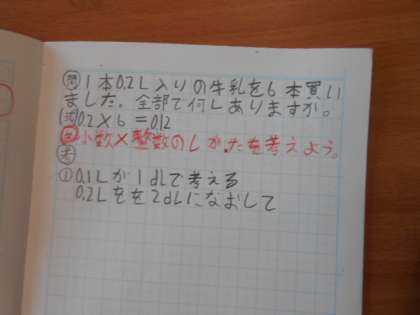 問 1本0.2L入りの牛乳を6本買い
ました。全部で何Lありますか。
式 0.2×6=0.12
小数×整数のしかたを考えよう。
考
① 0.1Lが1dLで考える
0.2Lをを2dLになおして